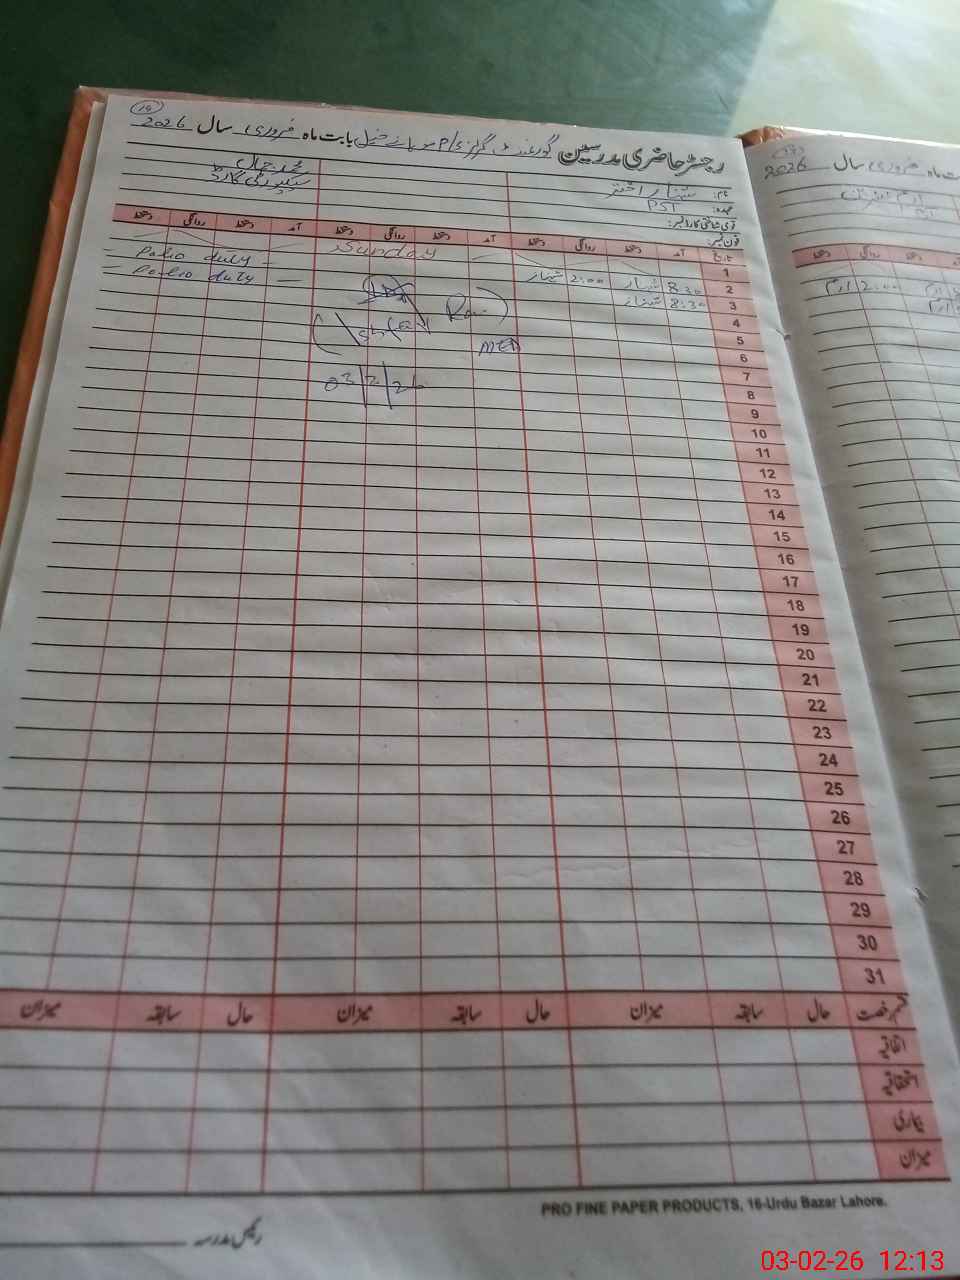 14
رجسٹر حاضری مدرسین گورنمنٹ گرلز P/S بابت ماہ فروری سال 2026
نام: شہناز اختر
محمد جمال
عہدہ: PST
سیکیورٹی گارڈ
قومی شناختی کارڈ نمبر:
فون نمبر:
تاریخ آمد دستخط روانگی دستخط آمد دستخط روانگی دستخط آمد دستخط روانگی دستخط
1 Sunday
2 8:30 شہناز 2:00 شہناز Polio duty
3 8:30 شہناز Polio duty
4
5
MEA
6
7
03/2/26
8
9
10
11
12
13
14
15
16
17
18
19
20
21
22
23
24
25
26
27
28
29
30
31
قسم رخصت حال سابقہ میزان حال سابقہ میزان حال سابقہ میزان
اتفاقیہ
استحقاقیہ
بیماری
میزان
PRO FINE PAPER PRODUCTS, 16-Urdu Bazar Lahore.
رئیس مدرسہ
17
ماہ فروری سال 2026
PST
دستخط روانگی دستخط
2:00 ارم
03-02-26 12:13